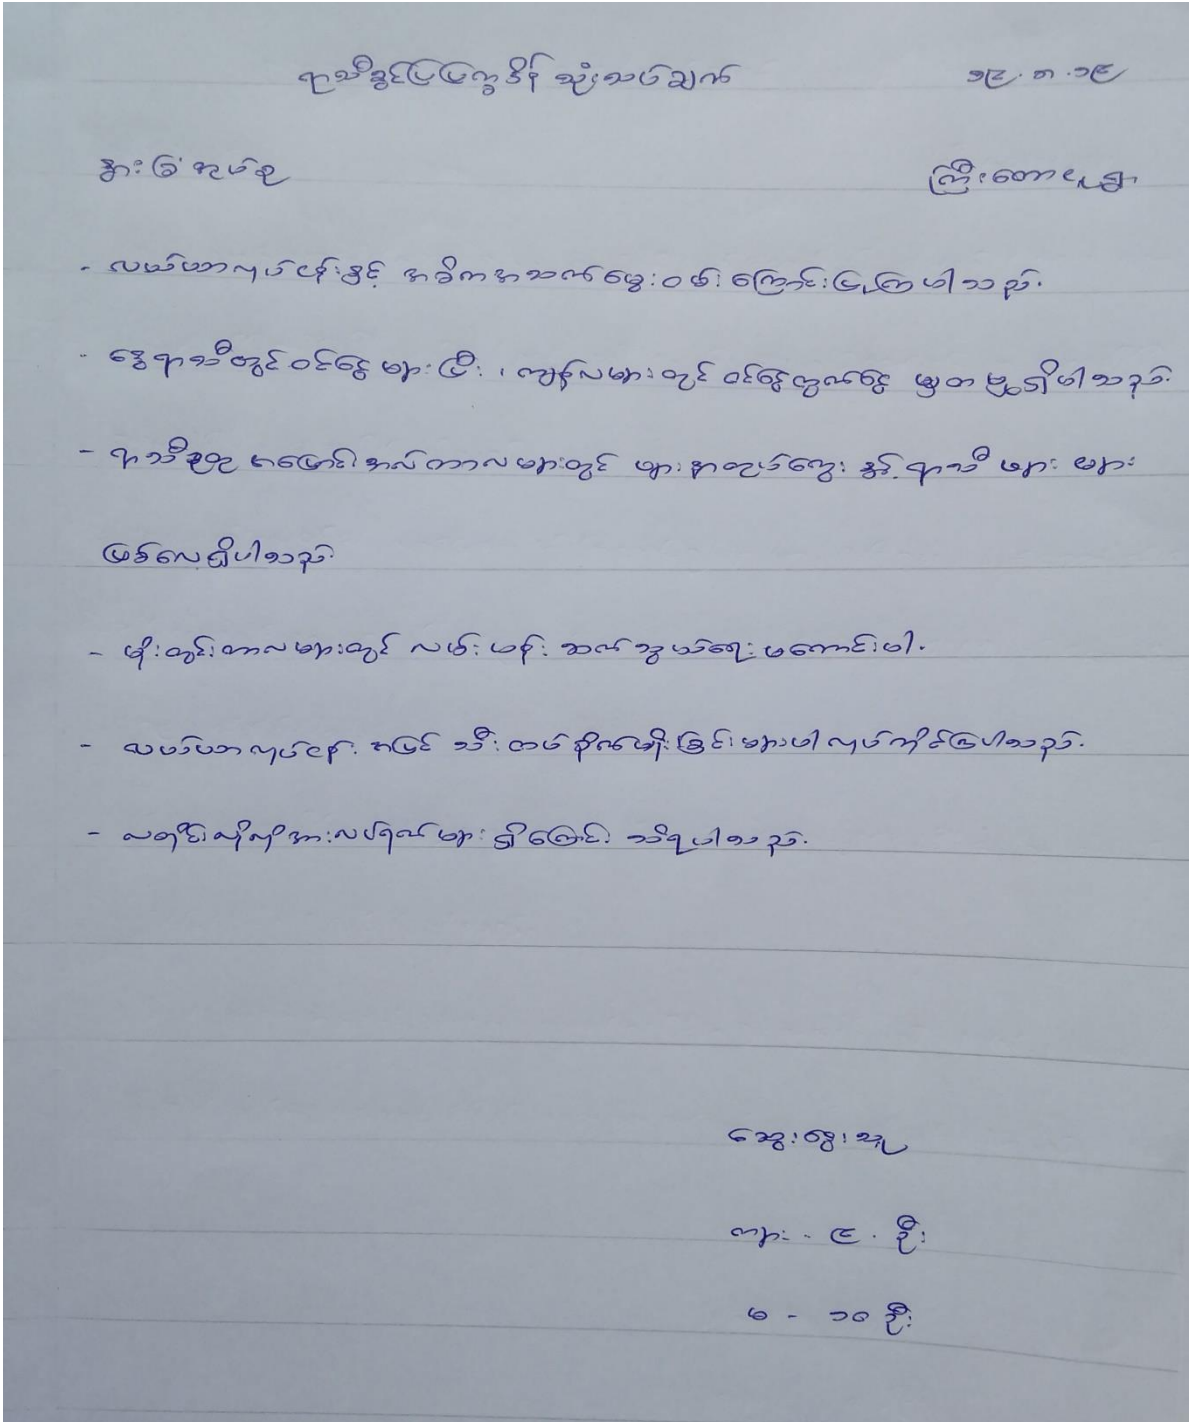 ရာသီခွင်ပြပြက္ခဒိန် သုံးသပ်ချက် ၁၄.၈.၁၉
နွားခြံအုပ်စု ကြီးတောင်ရွာ
- လယ်ယာလုပ်ငန်းနှင့် အဓိကအသက်မွေးဝမ်းကြောင်းပြုကြပါသည်.
- နွေရာသီတွင်ဝင်ငွေများပြီး၊ ကျန်လများတွင် ဝင်ငွေထွက်ငွေ မျှတမှုရှိပါသည်.
- ရာသီဥတု အပြောင်းအလဲကာလများတွင် ဖျားနာတုပ်ကွေး နှင့် ရာသီဖျား များ
ဖြစ်လေ့ရှိပါသည်.
- မိုးတွင်းကာလများတွင် လမ်းပန်း ဆက်သွယ်ရေး မကောင်းပါ.
- လယ်ယာလုပ်ငန်း အပြင် သီးထပ်စိုက်ပျိုးခြင်းများပါ လုပ်ကိုင်ကြပါသည်.
- လတိုင်းလိုလိုအားလပ်ရက်များ ရှိကြောင်း သိရပါသည်.
ဆွေးနွေးသူ
ကျား - ၄ . ဦး
မ - ၁၀ ဦး